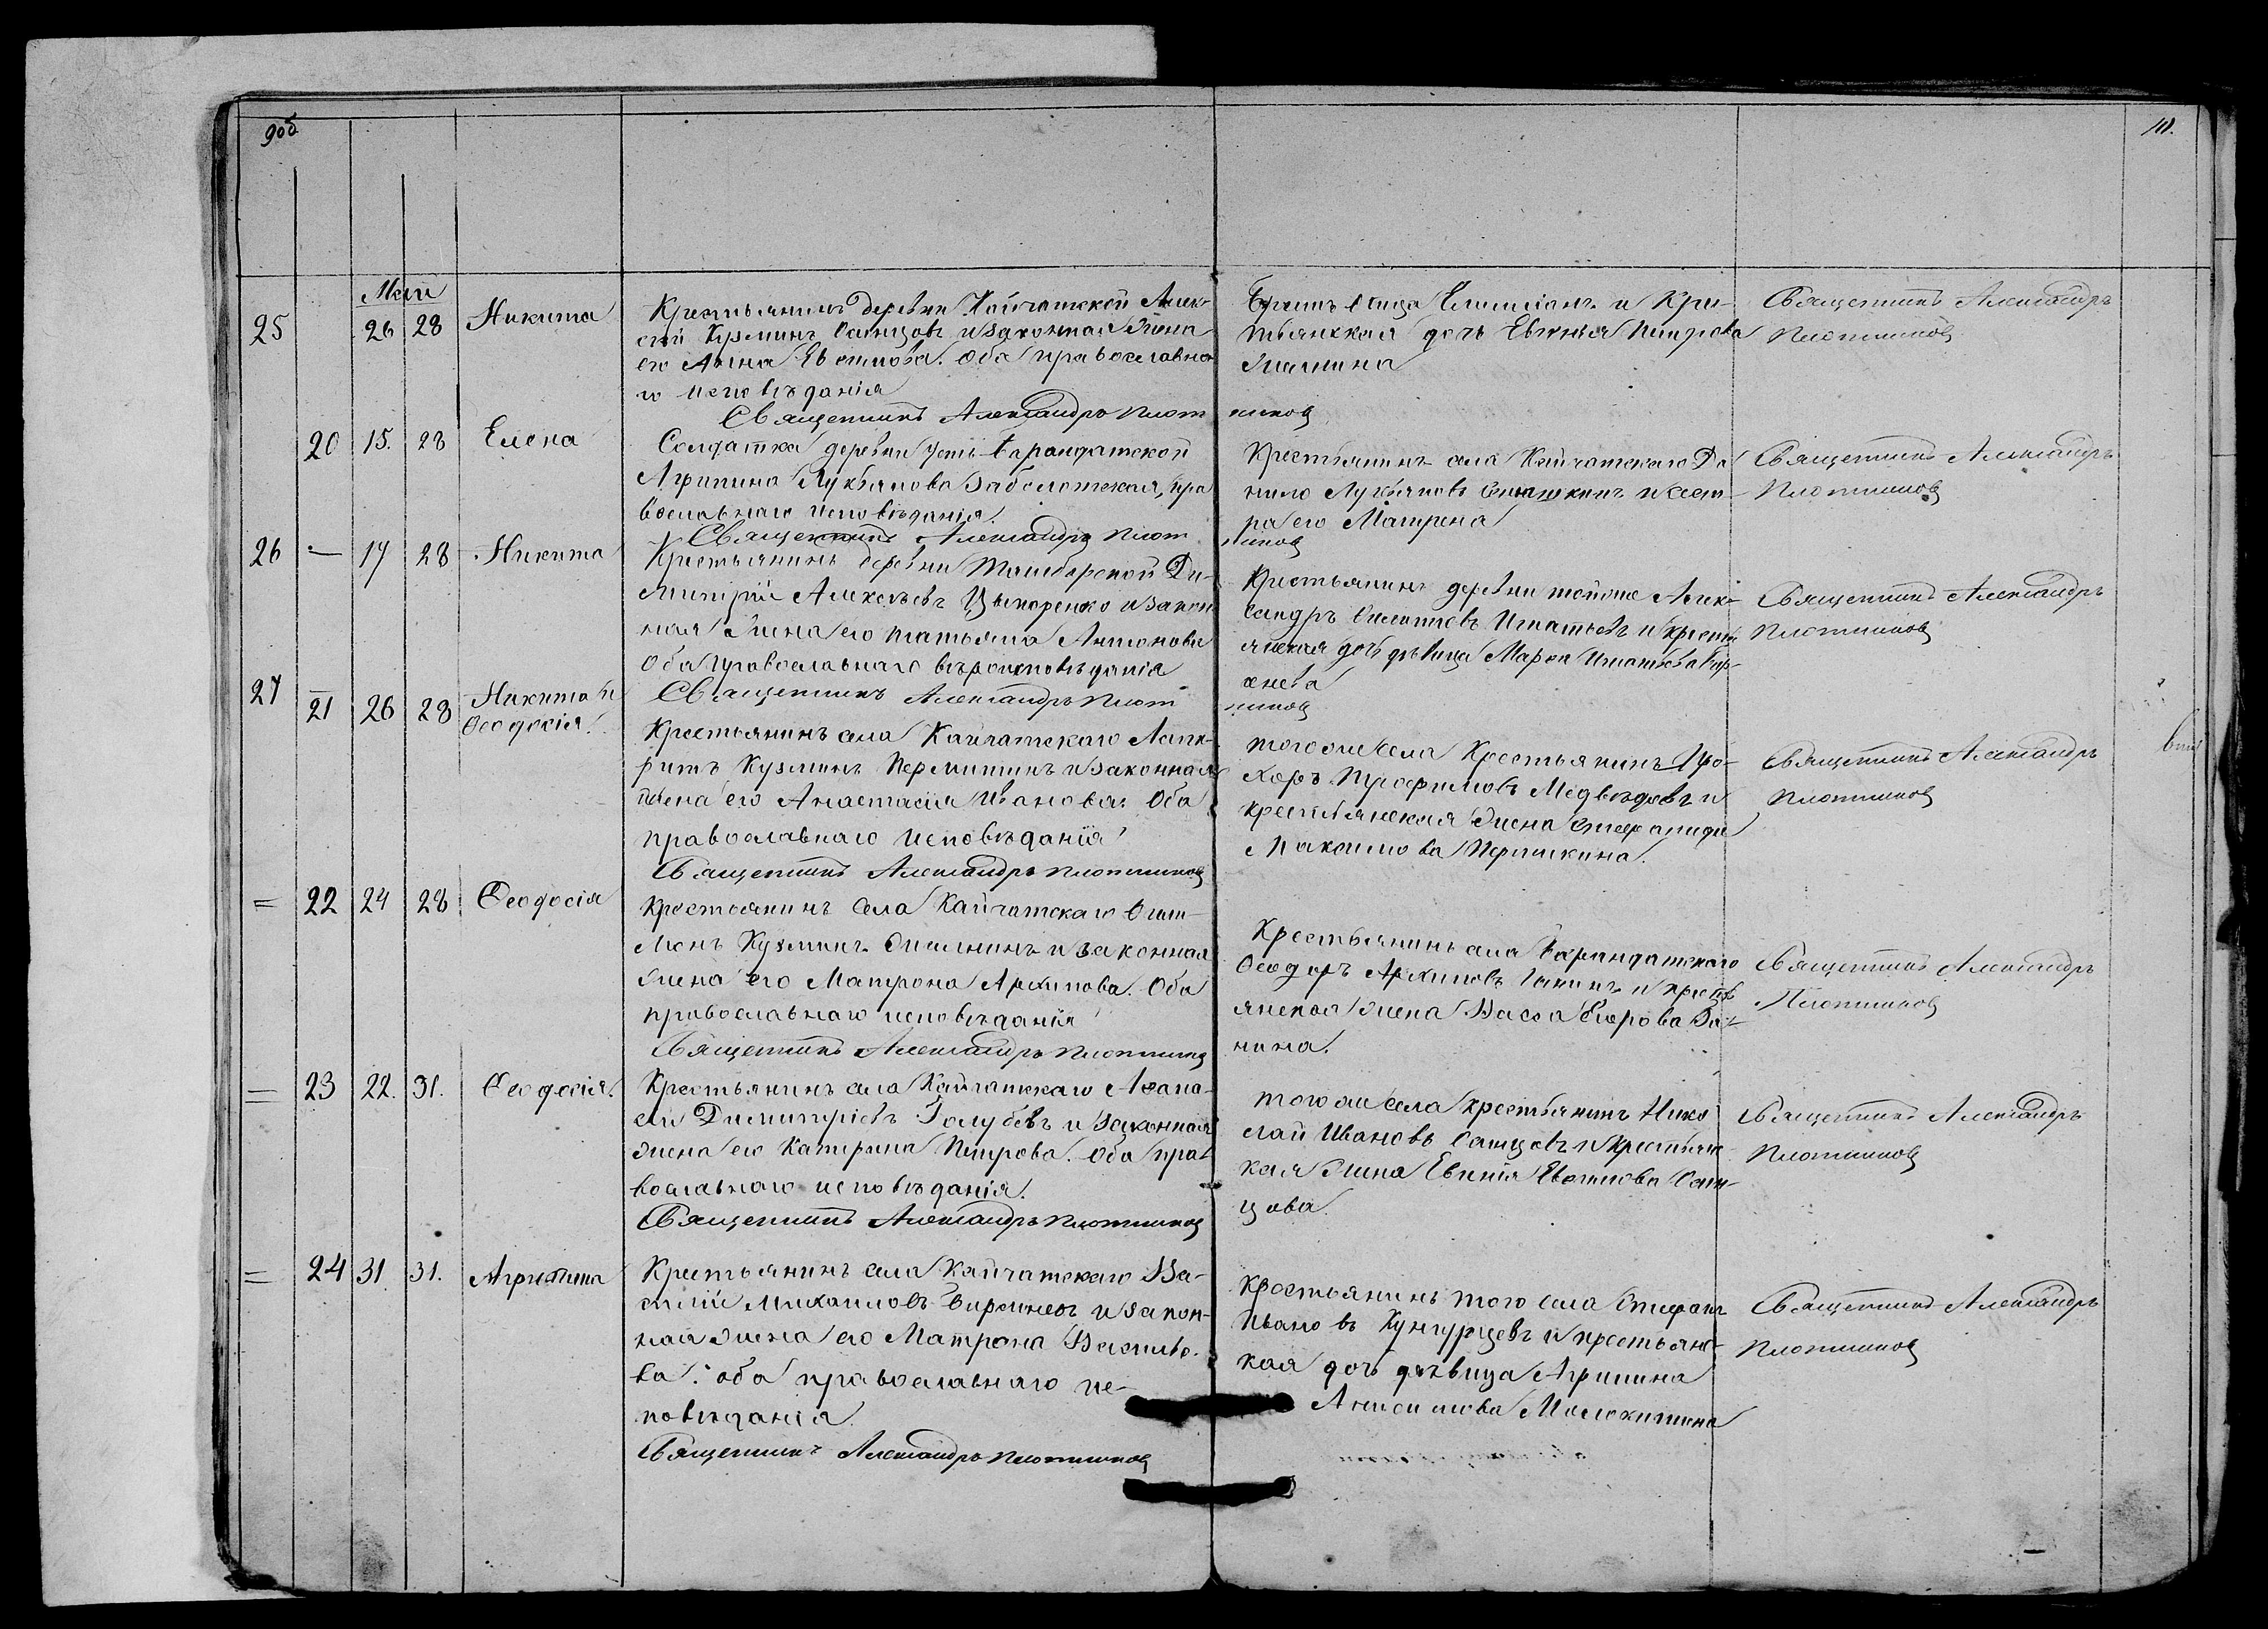 9об
10.
Май
25 26 28 Никита
Крестьянинъ деревни Кайчатской Алек-
сій Кузминъ Сапцовъ и законная жена
его Анна Евстигова. Оба православна-
го исповѣданія
Священникъ Александръ Плот
никовъ
Братъ отца Емилианъ и Кре-
стьянская дочь Евгенія Петрова
Священникъ Александръ
Плотниковъ
20 15. 28 Елена
Солдатка деревни Усть-Барандатской
Агрипина Лукьянова Заболотская, пра
вославнаго исповѣданія.
Священникъ Александръ Плот
никовъ
Крестьянинъ села Кайчатскаго Да
нило Лукьяновъ и сест-
ра его Матрена
Священникъ Александръ
Плотниковъ
26 — 17 28 Никита
Крестьянинъ деревни Тамбарской Ди-
митрій Алексѣевъ Цыпоренко и закон
ная жена его Татьяна Антонова
Оба православнаго вѣроисповѣданія
Священникъ Александръ Плот
никовъ
Крестьянинъ деревни тойже Алек-
сандръ Игнатьевъ и кресть
янская дочь дѣвица Марѳа Игнатьева
Священникъ Александръ
Плотниковъ
27 21 26 28 Никита и
Ѳеодосія.
Крестьянинъ села Кайчатскаго Лавк-
ритъ Кузминъ Пермитинъ и законная
жена его Анастасія Иванова. Оба
православнаго исповѣданія
Священникъ Александръ Плотниковъ
того же села Крестьянинъ Про-
хоръ Трофимовъ Медвѣдевъ и
крестьянская жена Стефанида
Максимова Першкина.
Священникъ Александръ
Плотниковъ
= 22 24 28 Ѳеодосія
Крестьянинъ села Кайчатскаго
Кузминъ и законная
жена его Матрона Архипова. Оба
православнаго исповѣданія
Священникъ Александръ Плотниковъ
Крестьянинъ села Барандатскаго
Ѳеодоръ Архиповъ и кресть
янская жена Васса Егорова За-
нина.
Священникъ Александръ
Плотниковъ
= 23 22. 31. Ѳеодосія.
Крестьянинъ села Кайчатскаго Аѳана-
сій Димитріевъ Голубевъ и законная
жена его Катерина Петрова. Оба пра-
вославнаго исповѣданія.
Священникъ Александръ Плотниковъ
того же села крестьянинъ Нико
лай Ивановъ Сапцовъ и крестьянс
кая жена Евгенія Сап-
цова.
Священникъ Александръ
Плотниковъ
= 24 31 31. Агрипина
Крестьянинъ села Кайчатскаго Ва-
силій Михаиловъ и закон-
ная жена его Матрона Василье-
ва. оба православнаго ис-
повѣданія.
Священникъ Александръ Плотниковъ
Крестьянинъ того села Стефанъ
Ивановъ Кунгурцевъ и крестьянс-
кая дочь дѣвица Агрипина
Анисимова Молокитина
Священникъ Александръ
Плотниковъ